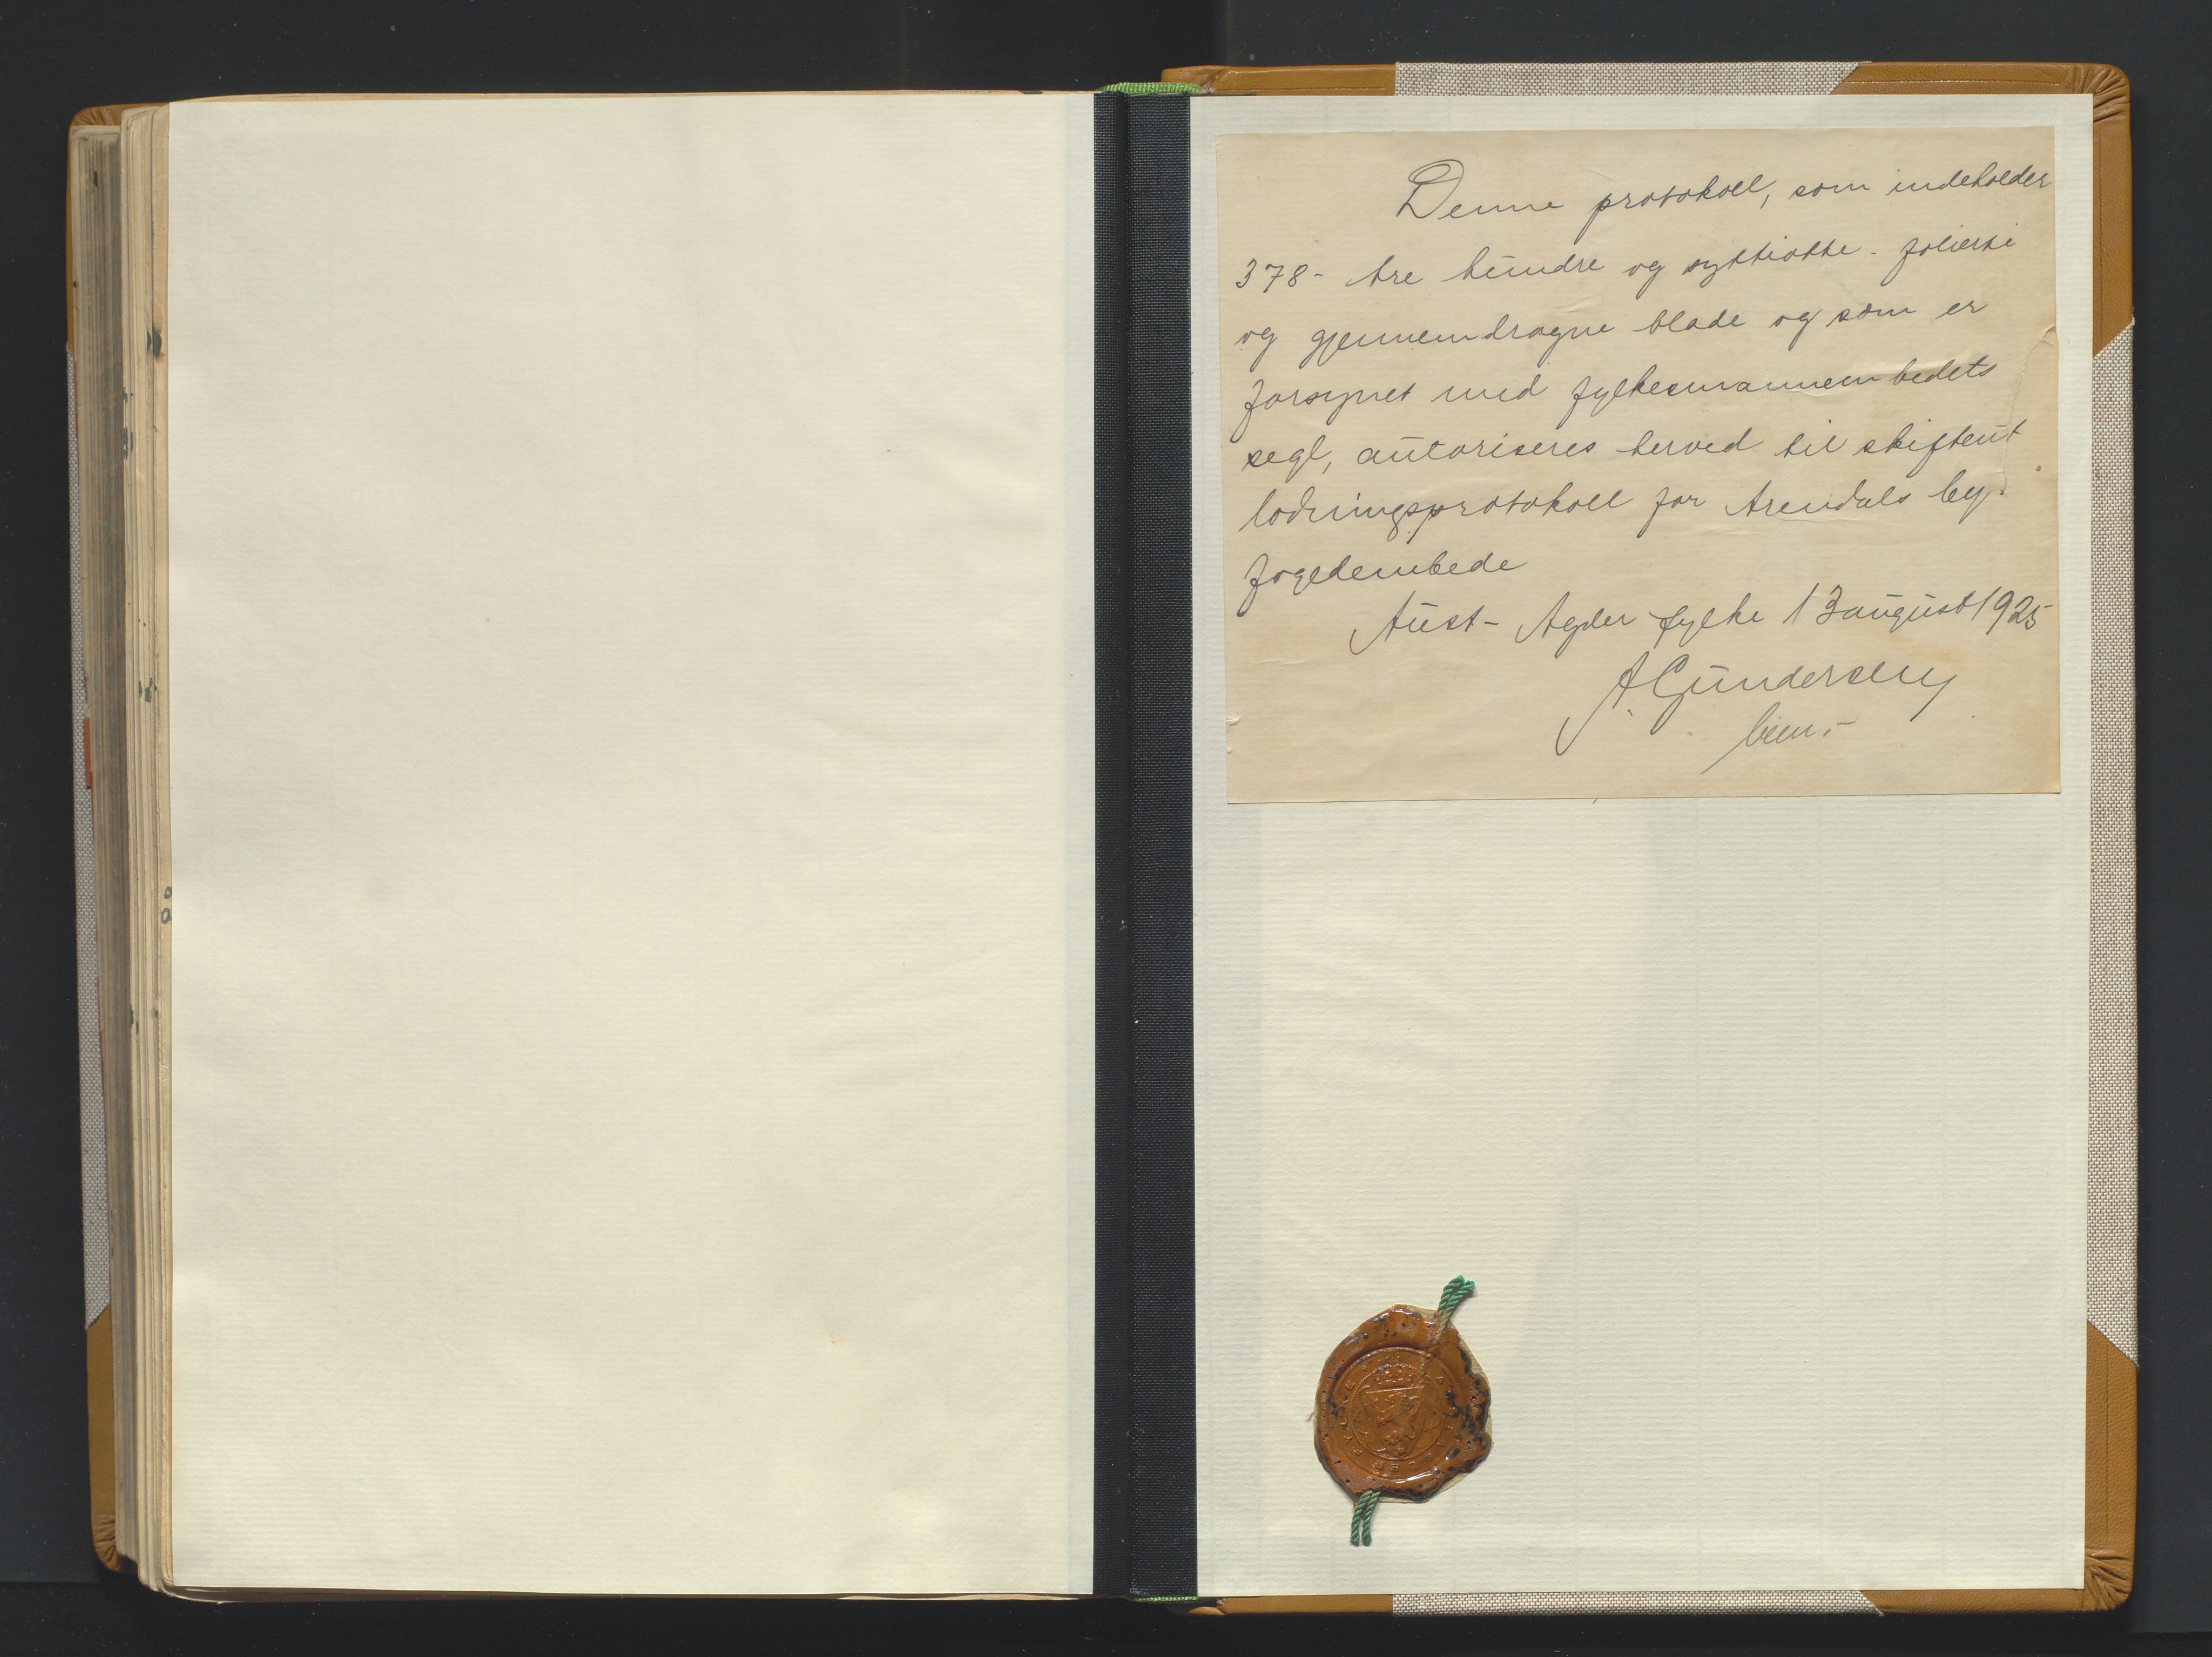 Denne protokoll, som indeholder
378- tre hundre og syttiotte - folierte
og gjennemdragne blade og som er
forsynet med fylkesmannembedets
segl, autoriseres herved til skifteut
lodningsprotokoll for Arendals by-
fogedembede
Aust-Agder fylke 13 august 1925
A Gundersen